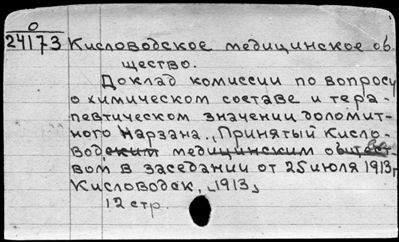 О
24173
Кисловодское медицинское об-
щество.
Доклад комиссии по вопросу
о химическом составе и тера-
певтическом значении доломит-
ного Нарзана. Принятый Кисло-
водским медицинским общест-
вом в заседании от 25 июля 1913 г
Кисловодск, 1913,
12 стр.